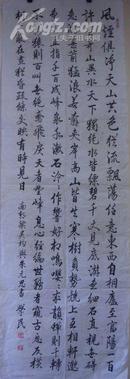 風煙俱淨天山共色從流飄蕩任意東西自桐廬至富陽一百
許里奇山異水天下獨絕水皆縹碧千丈見底游魚細石直視無礙
急湍甚箭猛浪若奔夾岸高山皆生寒樹負勢競上互相軒邈
爭高直指千百成峰泉水激石泠泠作響好鳥相鳴嚶嚶成韻蟬則千轉
不窮猿則百叫無絕鳶飛戾天者望峰息心經綸世務者窺谷忘反橫柯
上蔽在晝猶昏疏條交映有時見日
南朝梁吳均與朱元思書 榮民